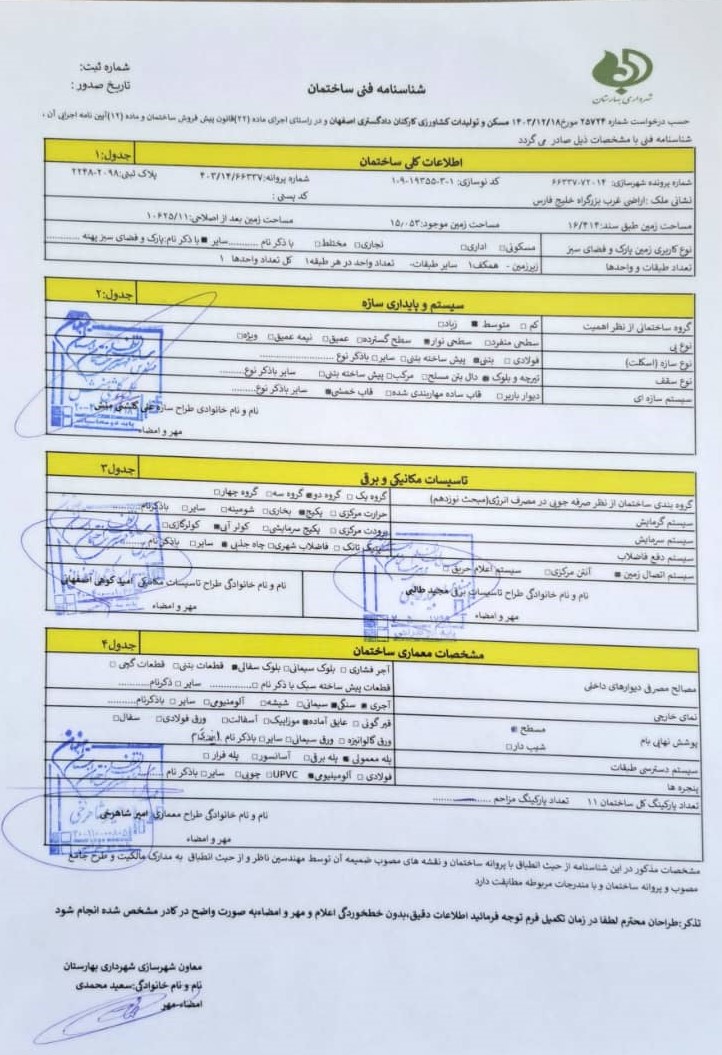 شهرداری بهارستان
شماره ثبت:
تاریخ صدور :
شناسنامه فنی ساختمان
حسب درخواست شماره ۲۵۷۲۴ مورخ۱۴۰۳/۱۲/۱۸ مسکن و تولیدات کشاورزی کارکنان دادگستری اصفهان و در راستای اجرای ماده (۲۲)قانون پیش فروش ساختمان و ماده (۱۲)آیین نامه اجرایی آن ،
شناسنامه فنی با مشخصات ذیل صادر می گردد
اطلاعات کلی ساختمان جدول:۱
شماره پرونده شهرسازی: ۷۲۰۱۴-۶۶۳۳۷ کد نوسازی: ۱-۳-۱۹۳۵۵-۱۰۹ شماره پروانه:۴۰۳/۱۴/۶۶۳۳۷ پلاک ثبتی:۲۰۹۸-۲۲۴۸
نشانی ملک :اراضی غرب بزرگراه خلیج فارس کد پستی :
مساحت زمین طبق سند:۱۶/۴۱۴ مساحت زمین موجود:۱۵/۰۵۳ مساحت زمین بعد از اصلاحی:۱۰۶۲۵/۱۱
نوع کاربری زمین پارک و فضای سبز مسکونی□ اداری□ تجاری□ مختلط□ با ذکر نام ...........سایر ■ با ذکر نام:پارک و فضای سبز پهنه ............
تعداد طبقات و واحدها زیرزمین - همکف۱ سایر طبقات- تعداد واحد در هر طبقه۱ کل تعداد واحدها ۱
سیستم و پایداری سازه جدول:۲
گروه ساختمانی از نظر اهمیت کم □ متوسط ■ زیاد□
نوع پی سطحی منفرد□ سطحی نوار■ سطح گسترده□ عمیق□ نیمه عمیق□ ویژه□
نوع سازه (اسکلت) فولادی □ بتنی■ پیش ساخته بتنی□ سایر□ باذکر نوع ......................
نوع سقف تیرچه و بلوک ■ دال بتن مسلح□ مرکب□ پیش ساخته بتنی□ سایر باذکر نوع.........
سیستم سازه ای دیوار باربر□ قاب ساده مهاربندی شده□ قاب خمشی■ سایر باذکر نوع.........
نام و نام خانوادی طراح سازه علی گلشنی منش
مهر و امضاء
تاسیسات مکانیکی و برقی جدول۳
گروه بندی ساختمان از نظر صرفه جویی در مصرف انرژی(مبحث نوزدهم) گروه یک□ گروه دو■ گروه سه□ گروه چهار□
سیستم گرمایش حرارت مرکزی □ پکیج■ بخاری□ شومینه□ سایر□ باذکرنام
سیستم سرمایش برودت مرکزی □ پکیج سرمایشی□ کولر آبی■ کولرگازی□
سیستم دفع فاضلاب سپتیک تانک □ فاضلاب شهری□ چاه جذبی■ سایر□ باذکرنام
سیستم اتصال زمین ■ آنتن مرکزی□ سیستم اعلام حریق □
نام و نام خانوادگی طراح تاسیسات برقی مجید طالبی
نام و نام خانوادگی طراح تاسیسات مکانیکی امید کوهی اصفهانی
مهر و امضاء
مهر و امضاء
مشخصات معماری ساختمان جدول۴
مصالح مصرفی دیوارهای داخلی آجر فشاری □ بلوک سیمانی□ بلوک سفالی■ قطعات بتنی□ قطعات گچی □
قطعات پیش ساخته سبک با ذکر نام □............... سایر □ ذکرنام............
نمای خارجی آجری■ سنگی■ سیمانی□ شیشه□ آلومنیومی□ سایر□ باذکرنام..........
پوشش نهایی بام مسطح■ قیر گونی □ عایق آماده■ موزاییک□ آسفالت□ ورق فولادی□ سفال□
شیب دار□ ورق گالوانیزه □ ورق سیمانی□ سایر□ باذکر نام
سیستم دسترسی طبقات پله معمولی ■ پله برقی□ آسانسور□ پله فرار □
پنجره ها فولادی □ آلومینیومی■ UPVC□ چوبی□ سایر□ باذکر نام
تعداد پارکینگ کل ساختمان ۱۱ تعداد پارکینگ مزاحم
نام و نام خانوادگی طراح معماری امیر شاهرخی
مهر و امضاء
مشخصات مذکور در این شناسنامه از حیث انطباق با پروانه ساختمان و نقشه های مصوب ضمیمه آن توسط مهندسین ناظر و از حیث انطباق به مدارک مالکیت و طرح جامع
مصوب و پروانه ساختمان و با مندرجات مربوطه مطابقت دارد
تذکر:طراحان محترم لطفا در زمان تکمیل فرم توجه فرمائید اطلاعات دقیق،بدون خطخوردگی اعلام و مهر و امضاءبه صورت واضح در کادر مشخص شده انجام شود
معاون شهرسازی شهرداری بهارستان
نام و نام خانوادگی:سعید محمدی
امضاء-مهر